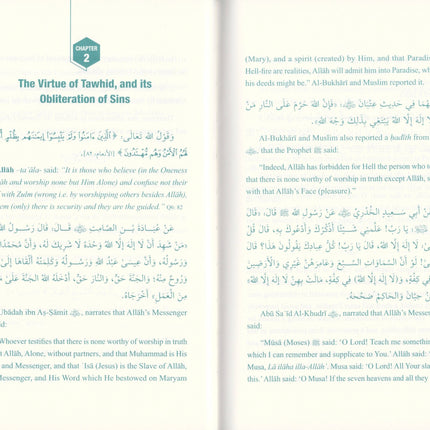 CHAPTER
2
The Virtue of Tawhid, and its
Obliteration of Sins
وَقَوْلُ اللهِ تَعَالَى: ﴿الَّذِينَ آمَنُوا وَلَمْ يَلْبِسُوا إِيمَانَهُم بِظُلْمٍ
لَهُمُ الْأَمْنُ وَهُم مُّهْتَدُونَ﴾ [الأنعام: ٨٢].
llāh -ta'āla- said: "It is those who believe (in the Oneness
llāh and worship none but Him Alone) and confuse not their
with Zulm (wrong i.e. by worshipping others besides Allāh),
em (only) there is security and they are the guided."
عَنْ عُبَادَةَ بْنِ الصَّامِتِ قَالَ: قَالَ رَسُولُ
«مَنْ شَهِدَ أَنْ لَا إِلَهَ إِلَّا اللهُ وَحْدَهُ لَا شَرِيكَ لَهُ، وَأَنَّ مُحَمَّدًا
وَرَسُولُهُ، وَأَنَّ عِيسَى عَبْدُ اللهِ وَرَسُولُهُ وَكَلِمَتُهُ أَلْقَاهَا إِلَى
وَرُوحٌ مِنْهُ، وَالْجَنَّةَ حَقٌّ، وَالنَّارَ حَقٌّ، أَدْخَلَهُ اللهُ الْجَنَّةَ عَلَى
مِنَ الْعَمَلِ» أَخْرَجَاهُ.
Ubādah ibn Aṣ-Ṣāmit, narrated that Allāh's Messenger
aid:
Whoever testifies that there is none worthy of worship in truth
Allāh, Alone, without partners, and that Muhammad is His
and Messenger, and that 'Isā (Jesus) is the Slave of Allāh,
Messenger, and His Word which He bestowed on Maryam
(Mary), and a spirit (created) by Him, and that Paradise
Hell-fire are realities, Allāh will admit him into Paradise, wh
his deeds might be." Al-Bukhārī and Muslim reported it.
لَهُمَا فِي حَدِيثِ عِتْبَانَ: «فَإِنَّ اللهَ حَرَّمَ عَلَى النَّارِ مَنْ
لَا إِلَهَ إِلَّا اللهُ يَبْتَغِي بِذَلِكَ وَجْهَ اللهِ».
Al-Bukhārī and Muslim also reported a hadīth from
that the Prophet said:
"Indeed, Allāh has forbidden for Hell the person who t
that there is none worthy of worship in truth except Allāh, s
with that Allāh's Face (pleasure)."
أَبِي سَعِيدٍ الْخُدْرِيِّ عَنْ رَسُولِ اللهِ قَالَ: «قَالَ
يَا رَبِّ! عَلِّمْنِي شَيْئًا أَذْكُرُكَ وَأَدْعُوكَ بِهِ، قَالَ: قُلْ
لَا إِلَهَ إِلَّا اللهُ، قَالَ: يَا رَبِّ! كُلُّ عِبَادِكَ يَقُولُونَ هَذَا؟ قَالَ
لَوْ أَنَّ السَّمَاوَاتِ السَّبْعَ وَعَامِرَهُنَّ غَيْرِي وَالْأَرَضِينَ
فِي كِفَّةٍ، وَ(لَا إِلَهَ إِلَّا اللهُ) فِي كِفَّةٍ، مَالَتْ بِهِنَّ لَا إِلَهَ إِلَّا
حِبَّانَ وَالْحَاكِمُ وَصَحَّحَهُ.
Abū Sa'īd Al-Khudrī, narrated that Allāh's Messen
said:
"Mūsā (Moses) said: 'O Lord! Teach me something
which I can remember and supplicate to You.' Allāh said: '
Musa, Lā ilāha illa-Allāh'. Musa said: 'O Lord! All Your sla
this.' Allāh said: 'O Musa! If the seven heavens and all they